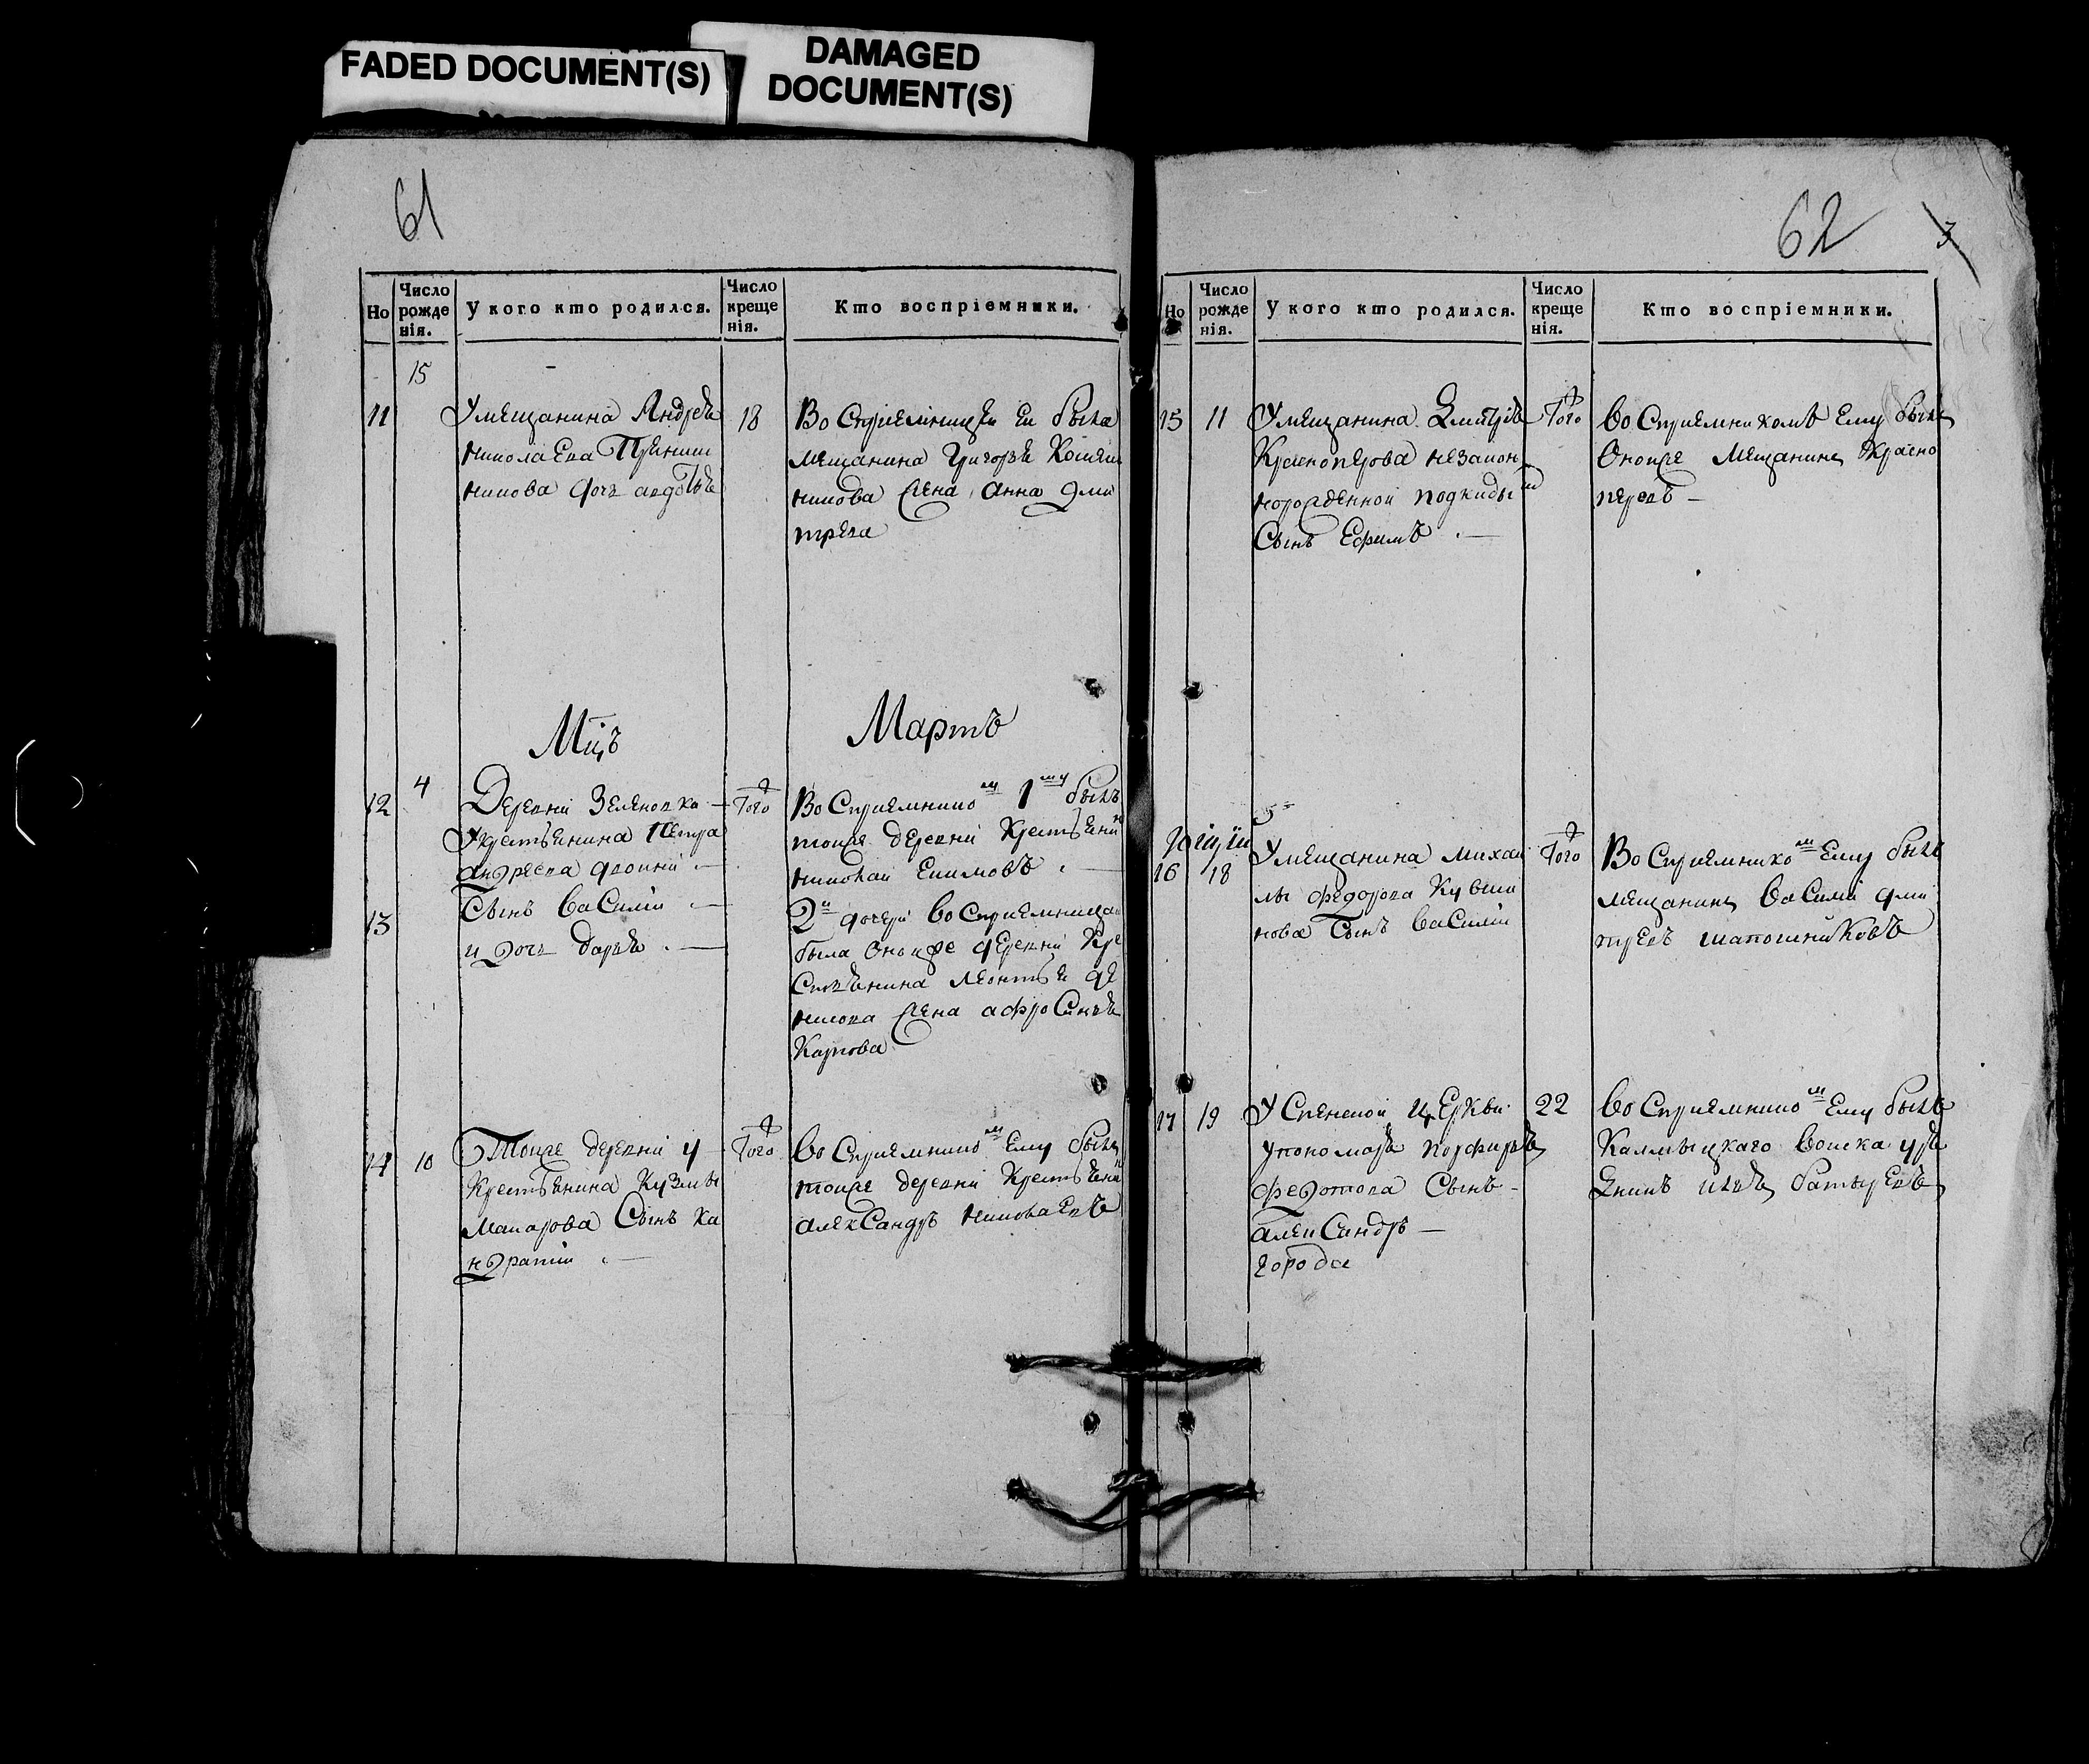 FADED DOCUMENT(S)
DAMAGED
DOCUMENT(S)
61
Но
Число рожденія.
У кого кто родился.
Число крещенія.
Кто воспріемники.
15
11
Умещанина Андрея
Николаева
дочь авдотья
18
Во Сприемницеи еи была
мещанина Григорья
жена Анна дми
трева
Мцъ
Мартъ
12
4
Деревни Зеленовка
Укрестьянина Петра
андреева двоини
Сынъ Василии
13
и дочь дарья
Того
Во Сприемнико м 1 му былъ
тоиже деревни Крестьянин
николаи Екимовъ
2 и дочери Восприемницаи
была Оноиже деревни Кре
стьянина леонтья де
нисова жена афросинья
Карпова
14
10
Тоиже деревни у
Крестьянина Кузмы
Макарова Сынъ Ка
ндратии
Того
Восприемнико м Ему былъ
тоиже деревни Крестьянин
алекСандръ николаевъ
62
3
Но
Число рожденія.
У кого кто родился.
Число крещенія.
Кто воспріемники.
15
11
Умещанина Дмитрія
Красноперова незакон
норожденной подкидыш
Сынъ Ефимъ
Того
Восприемникомъ Ему былъ
Оноиже Мещанинъ Красно
перовъ
16
18
Умещанина михаи
лы федорова Кувши
нова Сынъ ВаСилии
Того
Восприемнико м Ему былъ
мещанинъ ВаСилии дми
тревъ шапошниковъ
17
19
Успенской Церкви
упономаря порфирья
федотова Сынъ
алекСандръ
города
22
Восприемнико м Ему былъ
Калмыцкаго Воиска уря
дникъ илья батыревъ